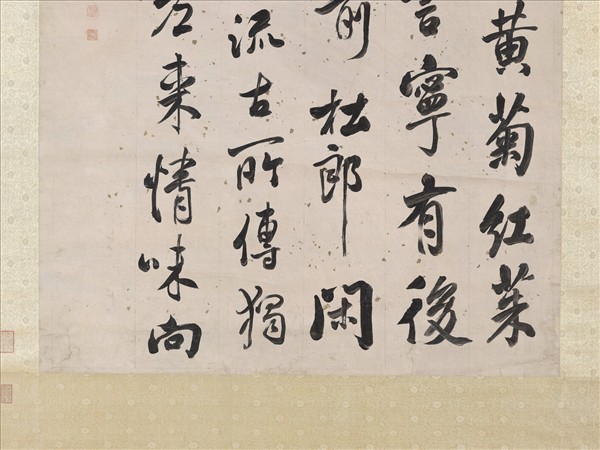 黄菊紅茱
寧有後
前杜郎閑
流古所傳獨
來情味向